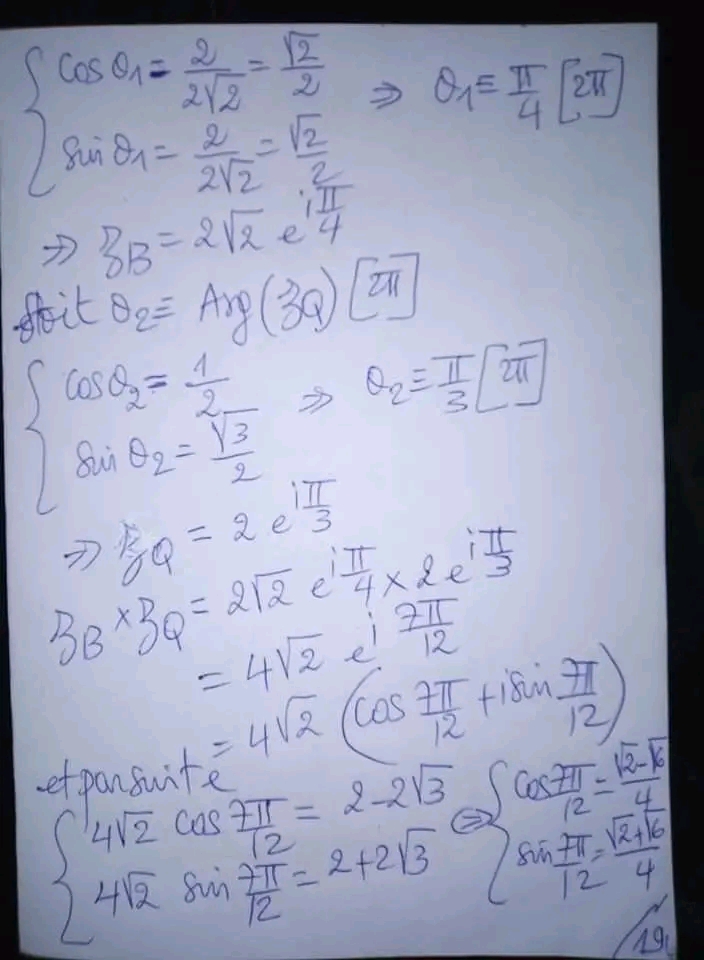 { cos θ1 = 2/(2√2) = √2/2 ⇒ θ1 ≡ π/4 [2π]
{ sin θ1 = 2/(2√2) = √2/2
⇒ zB = 2√2 e^(iπ/4)
soit θ2 ≡ Arg(zQ) [2π]
{ cos θ2 = 1/2 ⇒ θ2 ≡ π/3 [2π]
{ sin θ2 = √3/2
⇒ zQ = 2 e^(iπ/3)
zB × zQ = 2√2 e^(iπ/4) × 2 e^(iπ/3)
= 4√2 e^(i 7π/12)
= 4√2 (cos 7π/12 + i sin 7π/12)
et par suite
{ 4√2 cos 7π/12 = 2 - 2√3 ⇔ { cos 7π/12 = (√2-√6)/4
{ 4√2 sin 7π/12 = 2 + 2√3 { sin 7π/12 = (√2+√6)/4
19